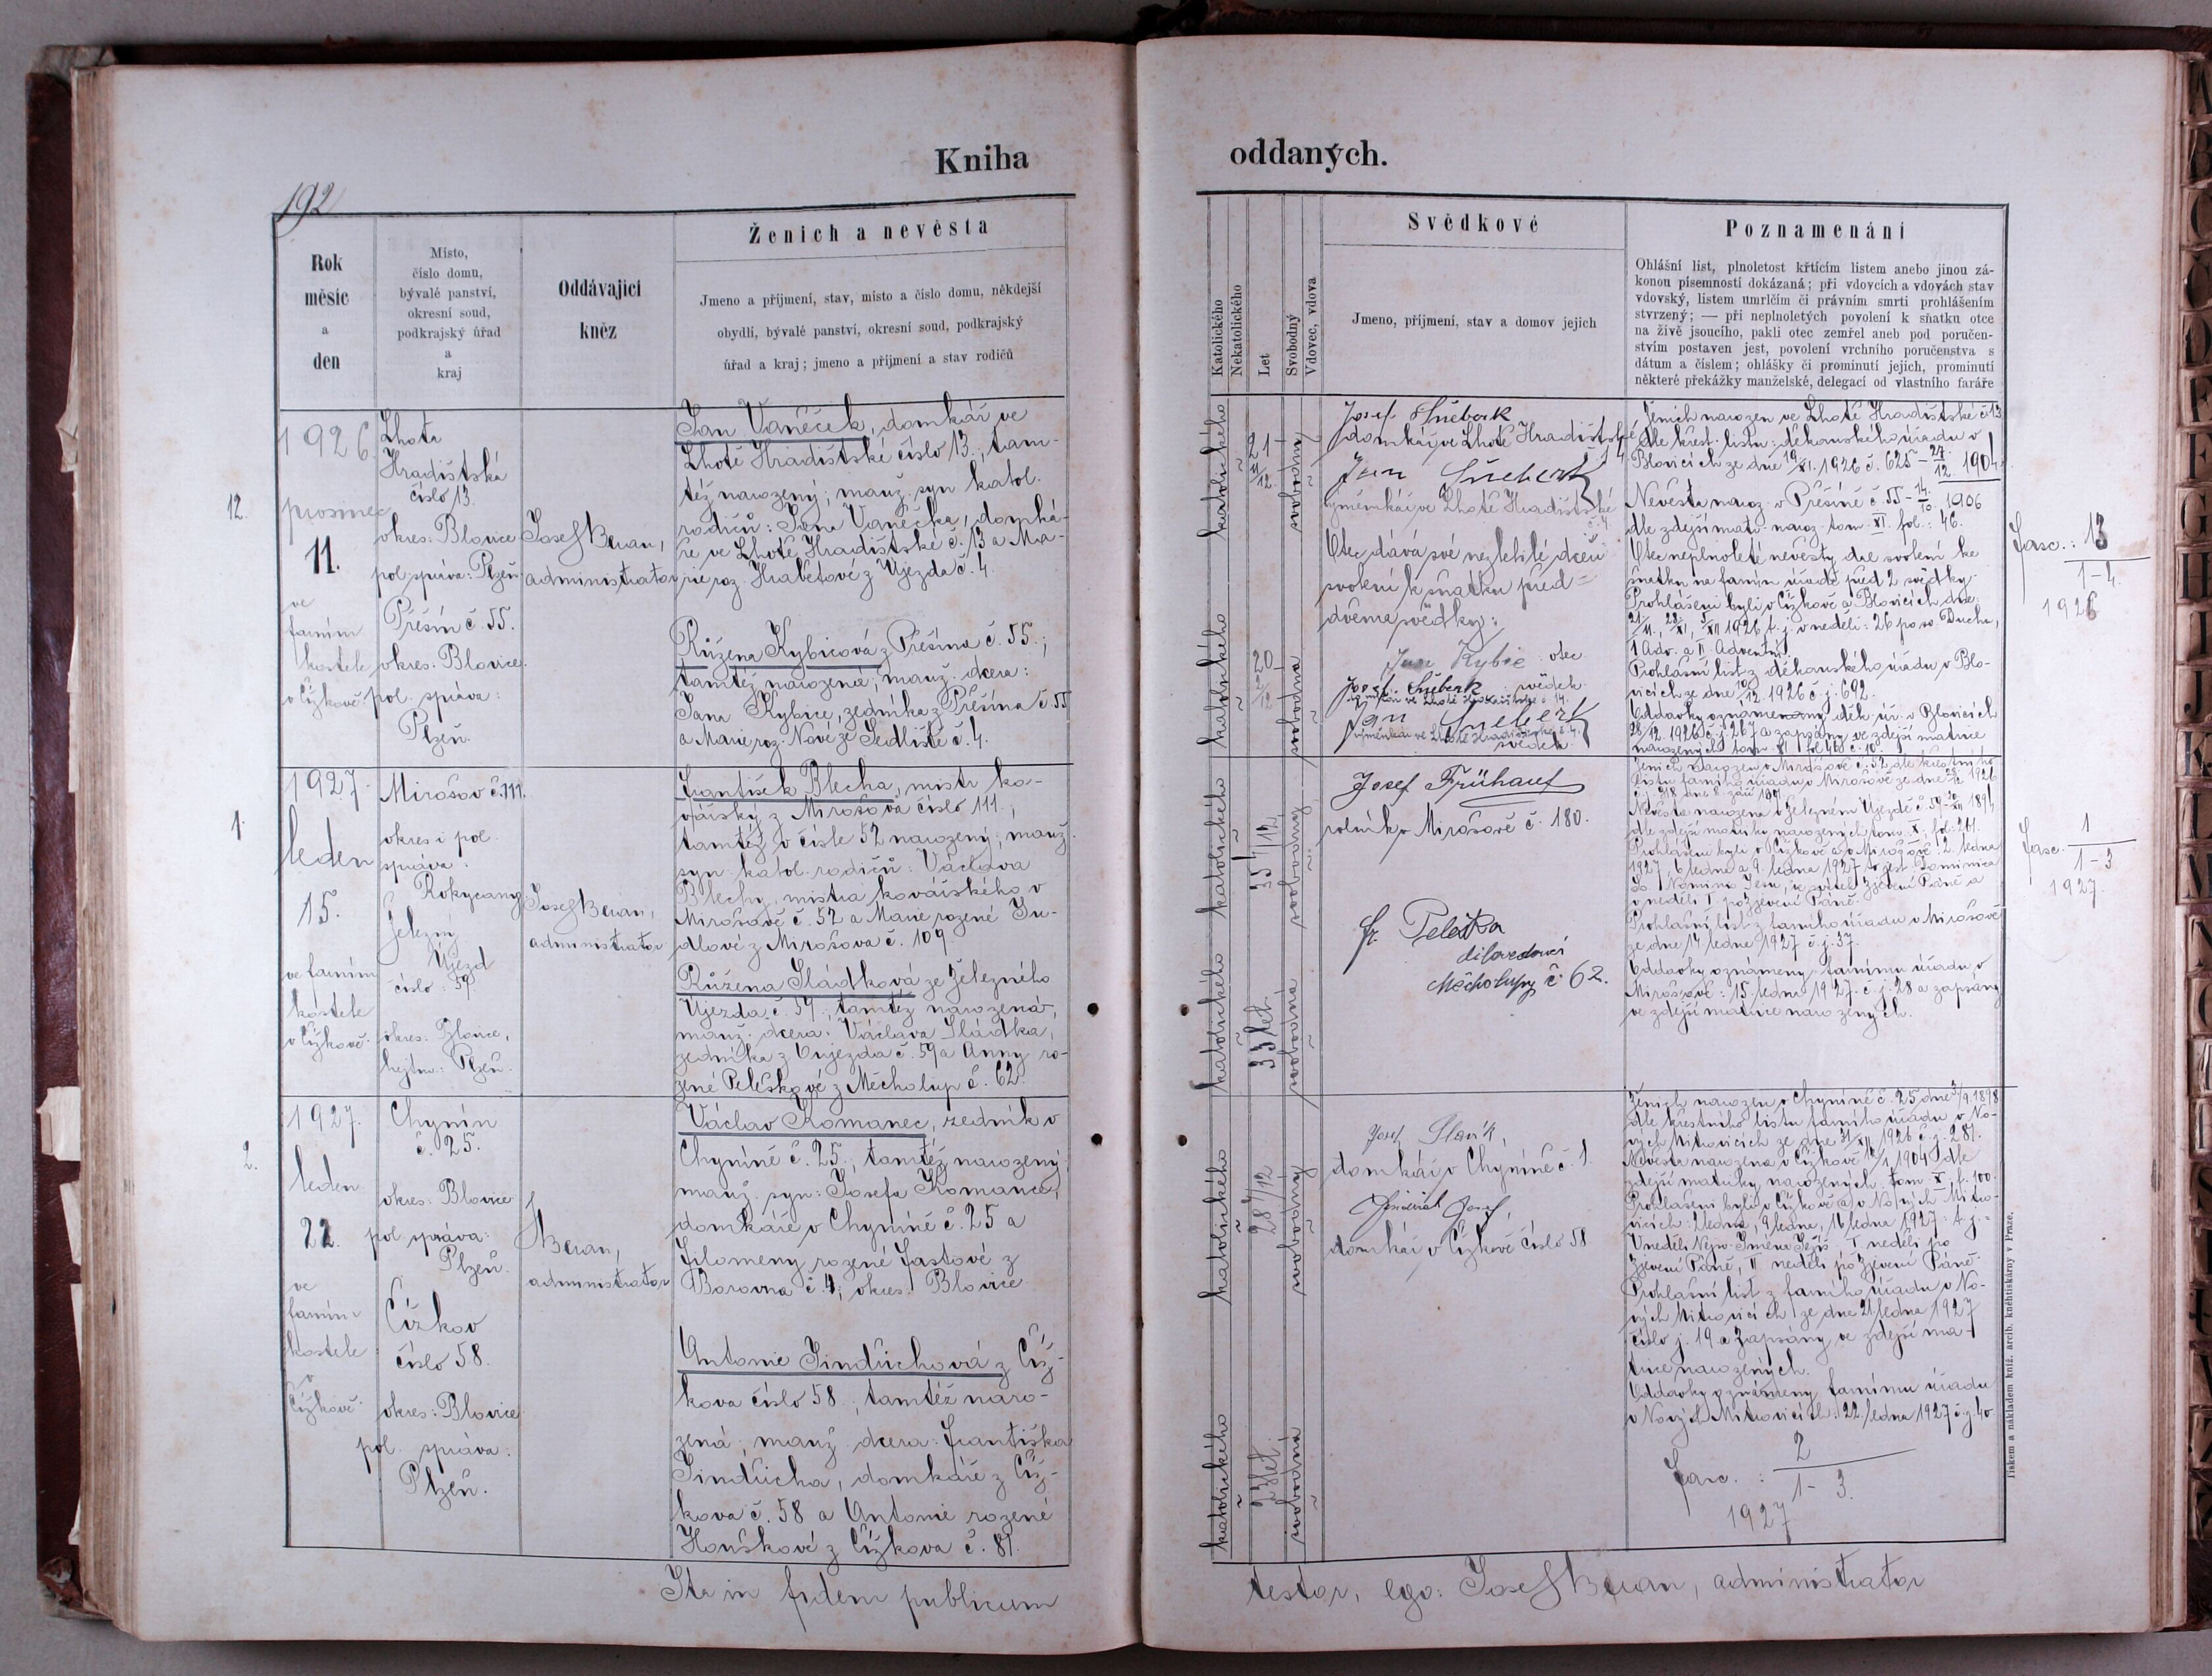 Kniha
oddaných.
192
Rok
měsíc
a
den
Místo,
číslo domu,
bývalé panství,
okresní soud,
podkrajský úřad
a
kraj
Oddávající
kněz
Ženich a nevěsta
Jmeno a příjmení, stav, místo a číslo domu, někdejší
obydlí, bývalé panství, okresní soud, podkrajský
úřad a kraj; jmeno a příjmení a stav rodičů
Katolického
Nekatolického
Let
Svobodný
Vdovec, vdova
Svědkové
Jmeno, příjmení, stav a domov jejich
Poznamenání
Ohlášní list, plnoletost křticím listem anebo jinou zá-
konou písemností dokázaná; při vdovcích a vdovách stav
vdovský, listem umrlčím či právním smrti prohlášením
stvrzený; — při neplnoletých povolení k sňatku otce
na živě jsoucího, pakli otec zemřel aneb pod poručen-
stvím postaven jest, povolení vrchního poručenstva s
dátum a číslem; ohlášky či prominutí jejich, prominutí
některé překážky manželské, delegací od vlastního faráře
12.
1926.
prosinec
11.
ve
farním
kostele
v Čížkově.
Lhota
Hradišťská
číslo 13.
okres: Blovice
pol. správa: Plzeň
Přešín č. 55.
okres: Blovice.
pol. správa:
Plzeň.
Josef Beran,
administrator
Jan Vaněček, domkář ve
Lhotě Hradištské číslo 13., tam-
též narozený; manž. syn katol.
rodičů: Jana Vaněčka, domká-
ře ve Lhotě Hradištské č. 13 a Ma-
rie roz. Hrabětové z Újezda č. 4.
Růžena Kybicová z Přešína č. 55.;
tamtéž narozená, manž. dcera:
Jana Kybice, zedníka z Přešína č. 55
a Marie roz. Nové ze Sedliště č. 4.
katolického
21
svobodný
katolického
20
svobodná
Josef Šneberk
domkář ve Lhotě Hradištské,
Jan Šneberk
výměnkář ve Lhotě Hradištské
č. 4.
Otec dává své nezletilé dceři
svolení k sňatku před
dvěma svědky:
Jan Kybic otec
Josef Šneberk svědek
Jan Šneberk
výměnkář ve Lhotě Hradištské č. 4.
svědek
Ženich narozen ve Lhotě Hradištské č. 13
dle křest. listu: děkanského úřadu v
Blovicích ze dne 19/XI. 1926 č. 625 – 27/12 1904.
Nevěsta naroz. v Přešíně č. 55 – 14/10. 1906
dle zdejší matr. naroz. tom. XI. fol.: 46.
Otec neplnoleté nevěsty dal svolení ke
sňatku na farním úřadě před 2 svědky.
Prohlášeni byli v Čížkově a Blovicích dne:
21/11., 28/XI, 5/XII 1926 t. j. v neděli: 26 po sv. Duchu,
1 Adv. a II. Adventní.
Prohlašní list z děkanského úřadu v Blo-
vicích ze dne 10/12. 1926 č. j. 692.
Oddavky oznámeny děk. úř. v Blovicích
a zapsány ve zdejší matrice
fasc.: 13
1-4.
1926
1.
1927.
leden
15.
ve farním
kostele
v Čížkově.
Mirošov č. 111.
okres i pol.
správa:
Rokycany
Železný
Újezd
číslo: 59.
okres: Blovice,
hejtm.: Plzeň.
Josef Beran,
administrator
František Blecha, mistr ko-
vářský z Mirošova číslo 111.;
tamtéž v čísle 52 narozený; manž.
syn katol. rodičů: Václava
Blechy, mistra kovářského v
Mirošově č. 52 a Marie rozené Ju-
dlové z Mirošova č. 109.
Růžena Sládková ze Železného
Újezda č. 59., tamtéž narozená,
manž. dcera: Václava Sládka,
zedníka z Újezda č. 59 a Anny ro-
zené Peleškové z Měcholup č. 62.
katolického
svobodný
katolického
33 let
svobodná
Josef Frühauf
rolník v Mirošově č. 180.
Fr. Peleška
Měcholupy č. 62.
Ženich narozen v Mirošově č. 52 dle křestního
listu farního úřadu v Mirošově ze dne
Nevěsta narozena v Železném Újezdě č. 59
dle zdejší matriky narozených tom. X., fol.: 261.
Prohlášeni byli v Čížkově a v Mirošově: 2. ledna
1927, 6 ledna a 9. ledna 1927
v neděli I. po Zjevení Páně.
Prohlašní list z farního úřadu v Mirošově
ze dne 14 ledna 1927 č. j. 37.
Oddavky oznámeny farnímu úřadu v
Mirošově: 15. ledna 1927. č. j. 28 a zapsány
ve zdejší matrice narozených.
fasc. 1
1-3
1927.
2.
1927.
leden
22.
ve
farním
kostele
v
Čížkově.
Chynín
č. 25.
okres: Blovice
pol. správa:
Plzeň.
Čížkov
číslo 58.
okres: Blovice
pol. správa:
Plzeň.
J. Beran,
administrator
Václav Komanec, zedník v
Chyníně č. 25., tamtéž narozený;
manž. syn: Josefa Komance,
domkáře v Chyníně č. 25 a
Filomeny rozené Fastové z
Borovna č. 4; okres: Blovice
Antonie Jindřichová z Číž-
kova číslo 58.; tamtéž naro-
zená, manž. dcera: Františka
Jindřicha, domkáře z Číž-
kova č. 58 a Antonie rozené
Houškové z Čížkova č. 81.
katolického
svobodný
katolického
23 let.
svobodná
Josef Slavík,
domkář v Chyníně č. 1.
Josef,
domkář v Čížkově číslo 58
Ženich narozen v Chyníně č. 25 dne 3/9. 1898
dle křestního listu farního úřadu v No-
vých Mitrovicích ze dne 31/XII 1926 č. j. 281.
Nevěsta narozena v Čížkově 1904 dle
zdejší matriky narozených tom. X, f. 100.
Prohlášeni byli v Čížkově a v Nových Mitro-
vicích: 2 ledna, 9 ledna, 16 ledna 1927: t. j.:
V neděli Nejsv. Jména Ježíš, I neděli po
Zjevení Páně, II neděli po Zjevení Páně.
Prohlašní list z farního úřadu v No-
vých Mitrovicích ze dne 21 ledna 1927
číslo j. 19 a zapsány ve zdejší ma-
trice narozených.
Oddavky oznámeny farnímu úřadu
v Nových Mitrovicích: 22. ledna 1927 č. j. 40.
fasc.: 2
1-3.
1927
Ita in fidem publicum
testor, ego: Josef Beran, administrator
Tiskem a nákladem kníž. arcib. knihtiskárny v Praze.